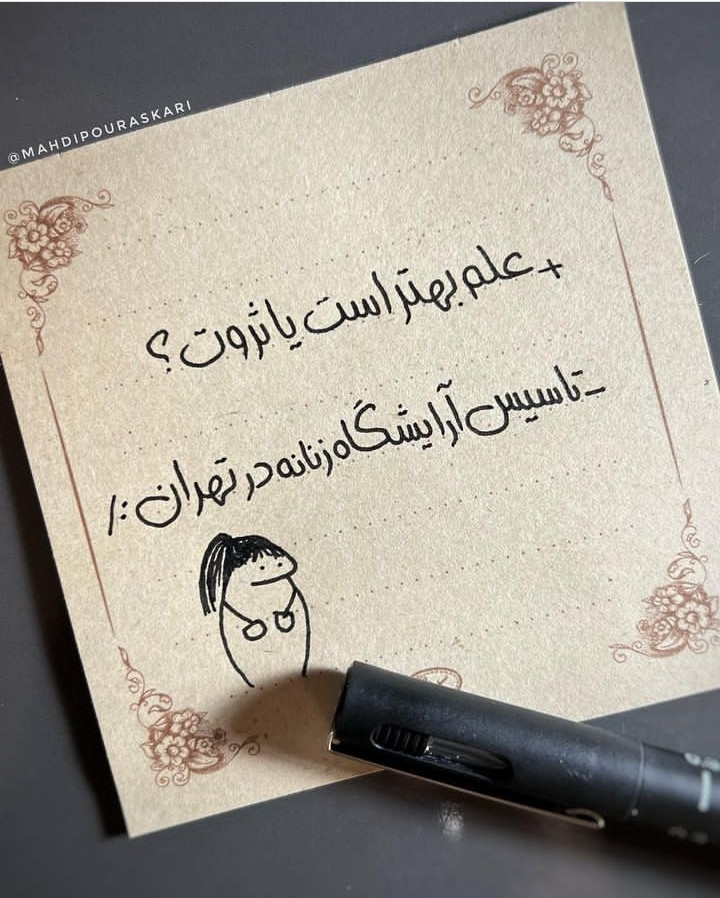 @MAHDIPOURASKARI
+ علم بهتر است یا ثروت ؟
- تاسیس آرایشگاه زنانه در تهران :/